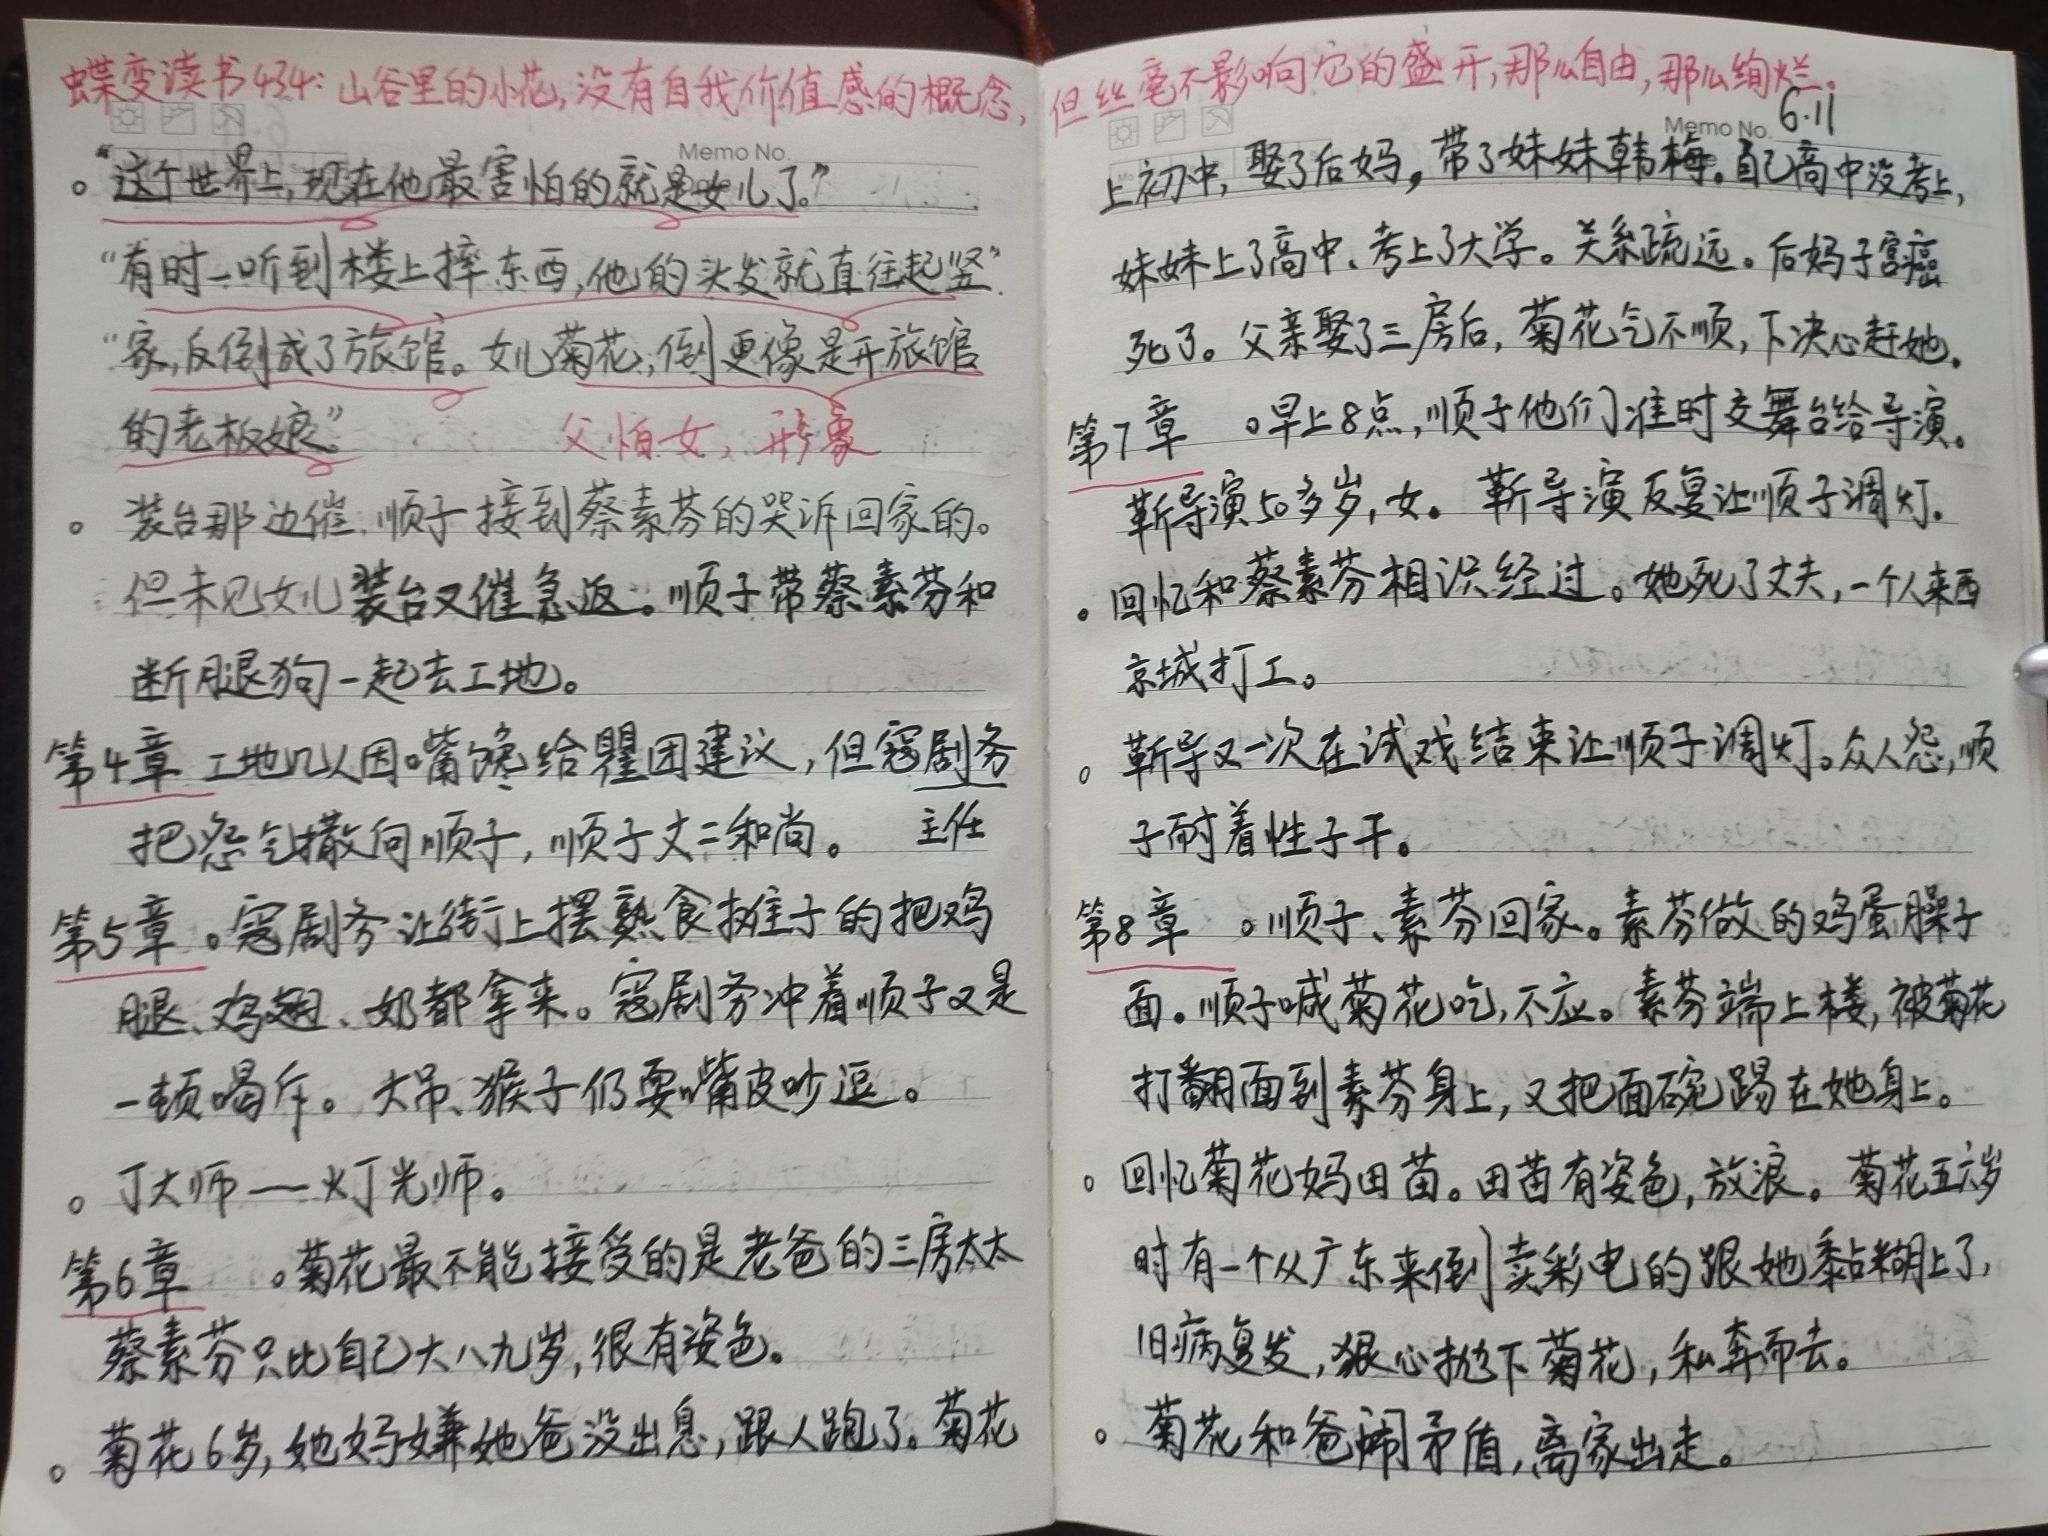 蝶变读书434：山谷里的小花，没有自我价值感的概念，
Memo No.
。“这个世界上，现在他最害怕的就是女儿了。”
“有时一听到楼上摔东西，他的头发就直往起竖”
“家，反倒成了旅馆。女儿菊花，倒更像是开旅馆
的老板娘”
父怕女，形象
。装台那边催，顺子接到蔡素芬的哭诉回家的。
但未见女儿装台又催急返。顺子带蔡素芬和
断腿狗一起去工地。
第4章 工地几人因嘴馋给瞿团建议，但寇剧务
主任
把怨气撒向顺子，顺子丈二和尚。
第5章 。寇剧务让街上摆熟食摊子的把鸡
腿、鸡翅、奶都拿来。寇剧务冲着顺子又是
一顿喝斥。大吊、猴子仍耍嘴皮吵逗。
。丁大师——灯光师。
第6章 。菊花最不能接受的是老爸的三房太太
蔡素芬只比自己大八九岁，很有姿色。
。菊花6岁，她妈嫌她爸没出息，跟人跑了。菊花
但丝毫不影响它的盛开，那么自由，那么绚烂。
Memo No. 6.11
上初中，娶了后妈，带了妹妹韩梅。自己高中没考上，
妹妹上了高中、考上了大学。关系疏远。后妈子宫癌
死了。父亲娶了三房后，菊花气不顺，下决心赶她。
第7章 。早上8点，顺子他们准时交舞台给导演。
靳导演50多岁，女。靳导演反复让顺子调灯。
。回忆和蔡素芬相识经过。她死了丈夫，一个人来西
京城打工。
。靳导又一次在试戏结束让顺子调灯。众人怨，顺
子耐着性子干。
第8章 。顺子、素芬回家。素芬做的鸡蛋臊子
面。顺子喊菊花吃，不应。素芬端上楼，被菊花
打翻面到素芬身上，又把面碗踢在她身上。
。回忆菊花妈田苗。田苗有姿色，放浪。菊花五六岁
时有一个从广东来倒卖彩电的跟她黏糊上了，
旧病复发，狠心抛下菊花，私奔而去。
。菊花和爸闹矛盾，离家出走。